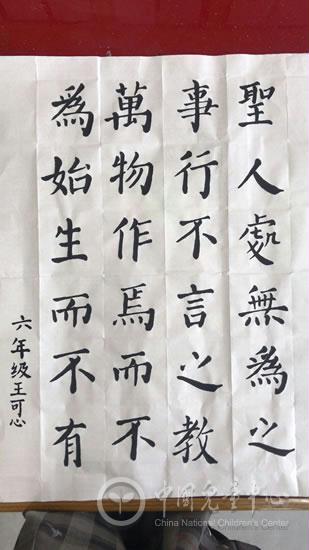 聖人處無為之
事行不言之教
萬物作焉而不
為始生而不有
六年级王可心
中国儿童中心
China National Children's Center